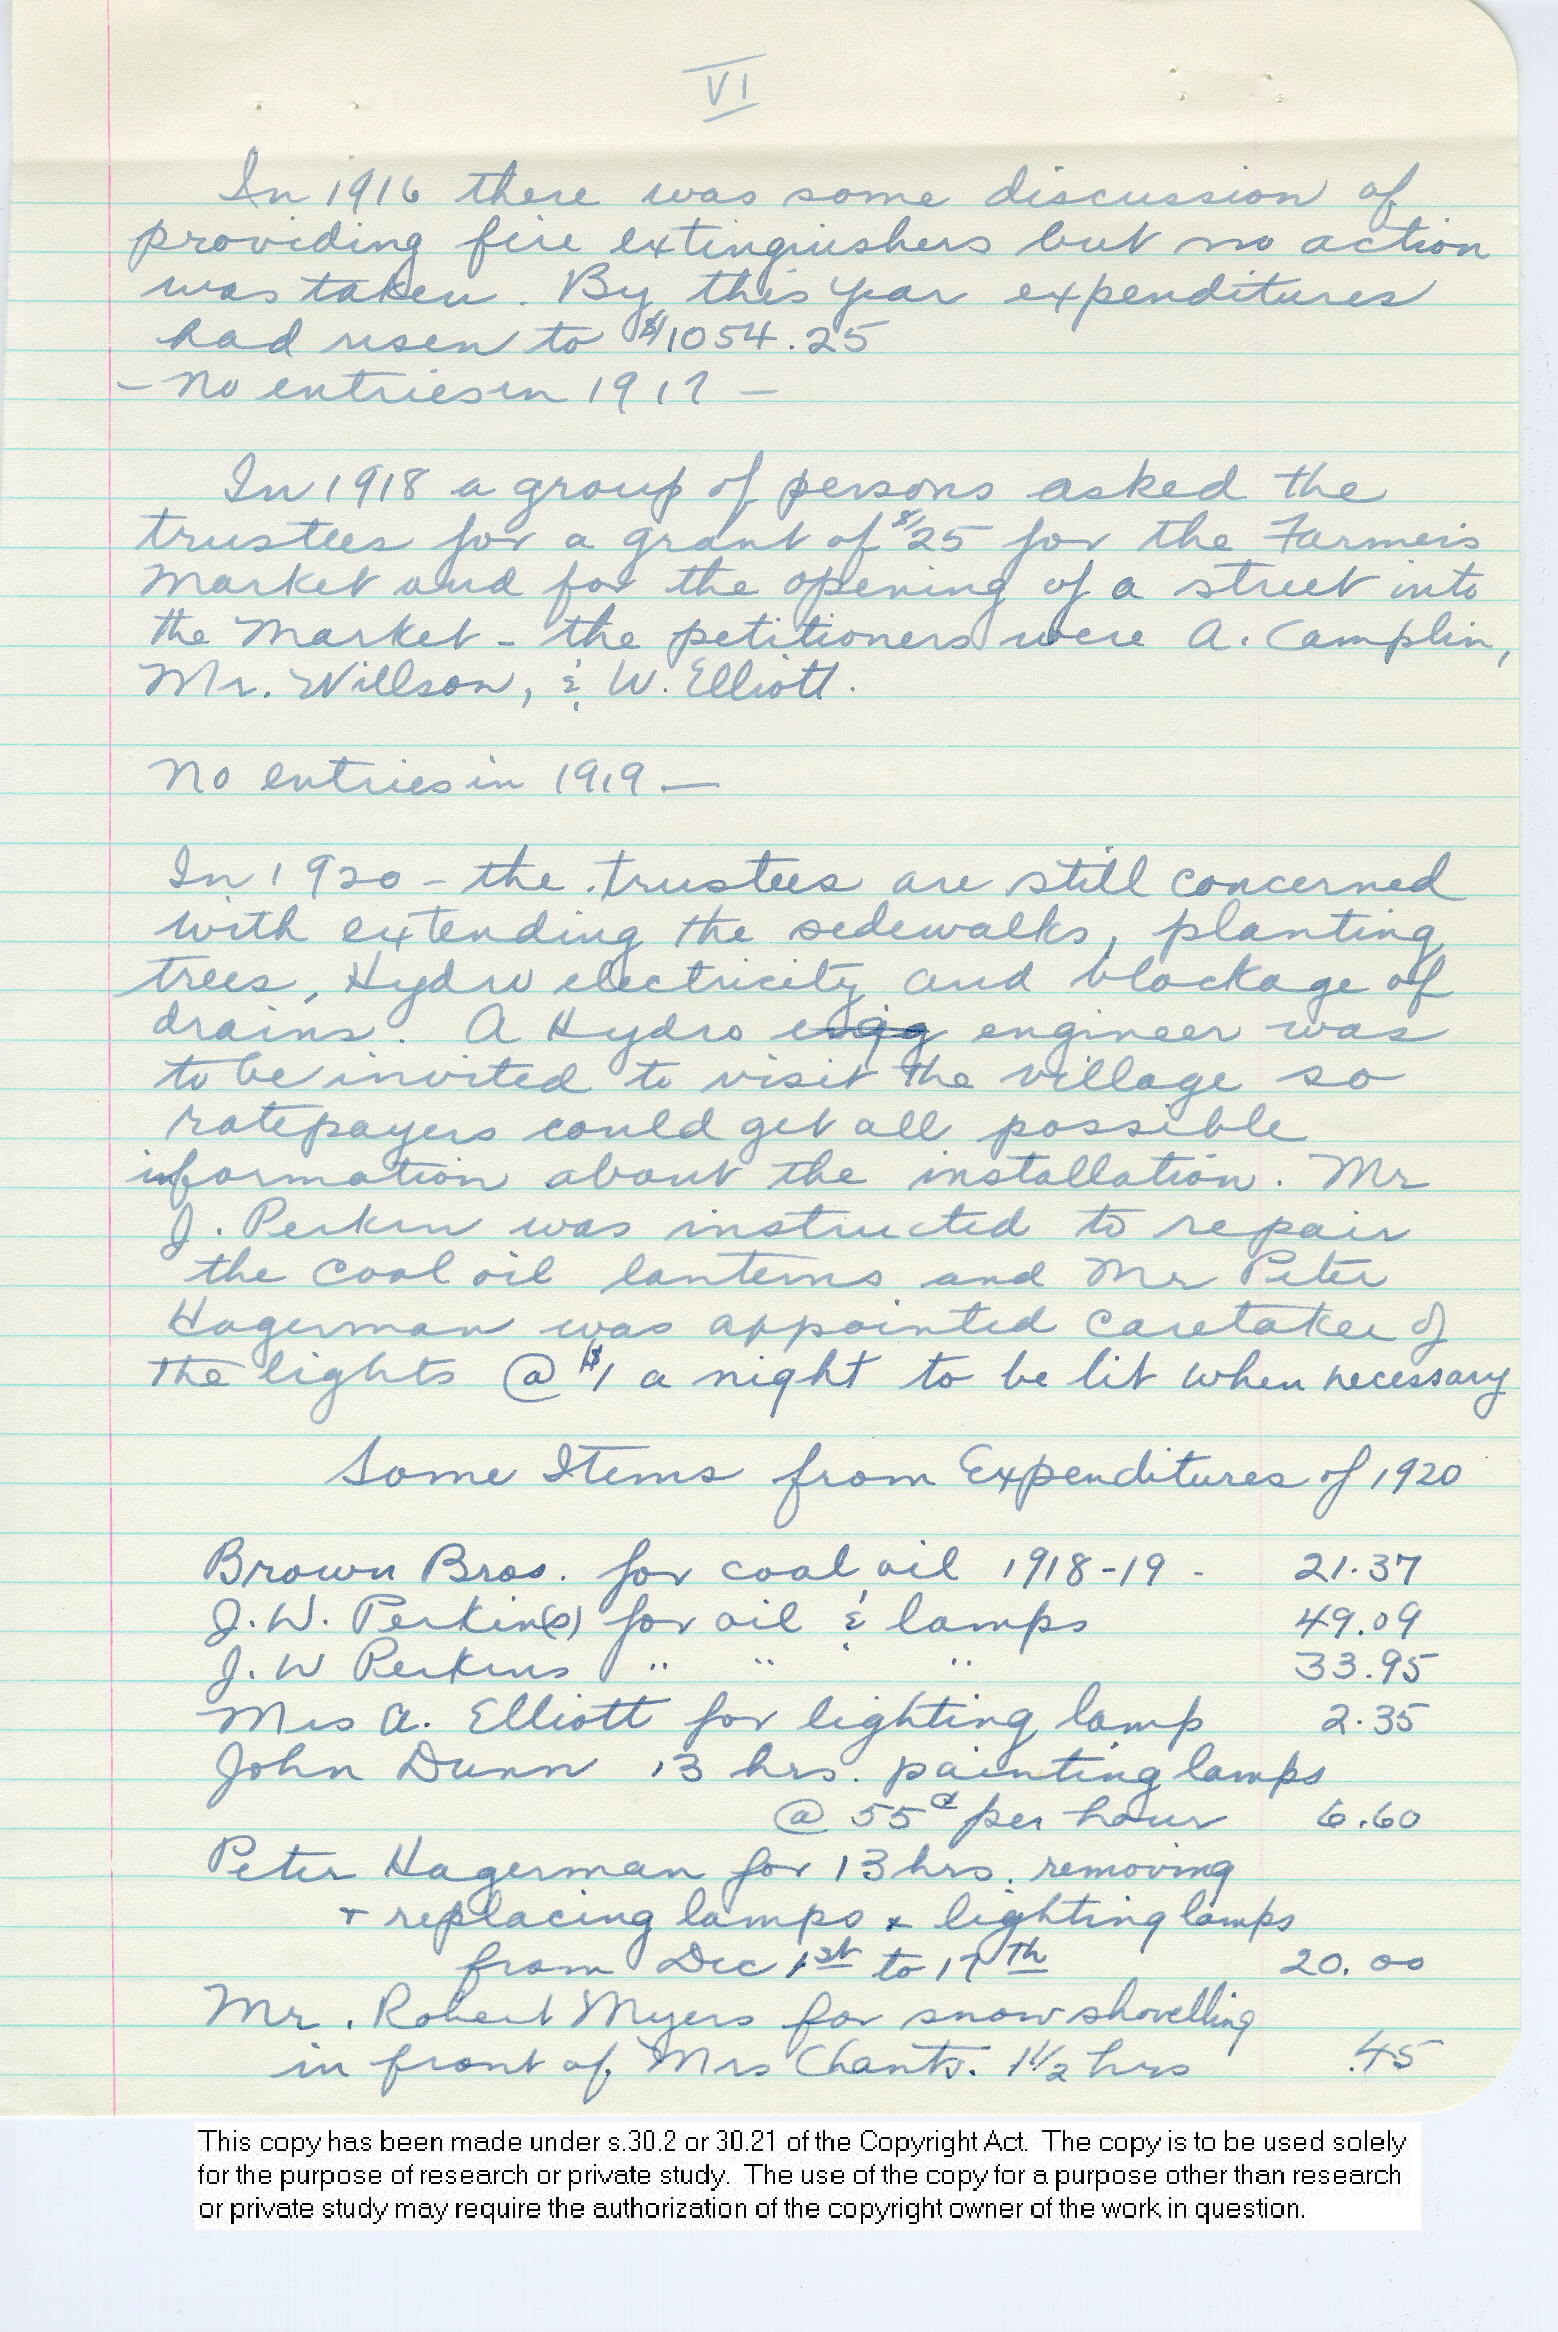 VI
In 1916 there was some discussion of
providing fire extinguishers but no action
was taken. By this year expenditures
had risen to $1054.25
- No entries in 1917 -
In 1918 a group of persons asked the
trustees for a grant of $25 for the Farmers
Market and for the opening of a street into
the Market - the petitioners were A. Camplin,
Mr. Willson, & W. Elliott.
No entries in 1919 -
In 1920 - the trustees are still concerned
with extending the sidewalks, planting
trees, Hydro electricity and blockage of
drains. A Hydro engineer was
to be invited to visit the village so
ratepayers could get all possible
information about the installation. Mr
J. Perkin was instructed to repair
the coal oil lanterns and Mr Peter
Hagerman was appointed caretaker of
the lights @ $1 a night to be lit when necessary
Some Items from Expenditures of 1920
Brown Bros. for coal oil 1918-19 - 21.37
J.W. Perkin(s) for oil & lamps 49.09
J.W Perkins " " " 33.95
Mrs A. Elliott for lighting lamp 2.35
John Dunn 13 hrs. painting lamps
@ 55¢ per hour 6.60
Peter Hagerman for 13 hrs. removing
+ replacing lamps + lighting lamps
from Dec 1st to 17th 20.00
Mr. Robert Myers for snow shovelling
in front of Mrs Chants. 1 1/2 hrs .45
This copy has been made under s.30.2 or 30.21 of the Copyright Act. The copy is to be used solely
for the purpose of research or private study. The use of the copy for a purpose other than research
or private study may require the authorization of the copyright owner of the work in question.